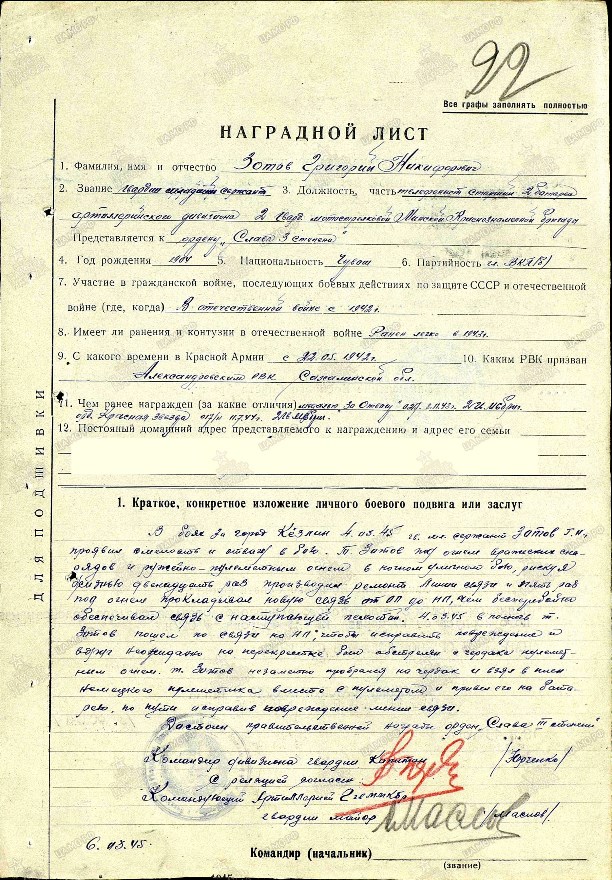 22
Все графы заполнять полностью
НАГРАДНОЙ ЛИСТ
1. Фамилия, имя и отчество Зотов Григорий Никифорович
2. Звание гвардии младший сержант 3. Должность, часть телефонист старший 2 батареи
артиллерийского дивизиона 2 гвард. мотострелковой Минской Краснознаменной бригады
Представляется к ордену "Слава 3 степени"
4. Год рождения 1904 5. Национальность Чуваш 6. Партийность чл. ВКП(б)
7. Участие в гражданской войне, последующих боевых действиях по защите СССР и отечественной
войне (где, когда) В отечественной войне с 1942 г.
8. Имеет ли ранения и контузии в отечественной войне Ранен легко в 1943 г.
9. С какого времени в Красной Армии с 22.05.1942 г. 10. Каким РВК призван
Александровским РВК Сахалинской обл.
11. Чем ранее награжден (за какие отличия) медалью "За Отвагу"
орд. Красная звезда
12. Постоянный домашний адрес представляемого к награждению и адрес его семьи
ДЛЯ ПОДШИВКИ
1. Краткое, конкретное изложение личного боевого подвига или заслуг
В боях за город Кёзлин 4.03.45 гв. мл. сержант Зотов Г.Н.
проявил смелость и отвагу в бою. Т. Зотов под огнем вражеских сна-
рядов и ружейно-пулеметным огнем в ночном уличном бою, рискуя
жизнью двенадцать раз производил ремонт линии связи и пять раз
под огнем прокладывал новую связь от ОП до НП, чем бесперебойно
обеспечивал связь с наступающей пехотой. 4.03.45 в полночь т.
Зотов пошел по связи на НП, чтобы исправить повреждение и
вдруг неожиданно на перекрестке был обстрелян с чердака пулемет-
ным огнем. т. Зотов незаметно пробрался на чердак и взял в плен
немецкого пулеметчика вместе с пулеметом и привел его на бата-
рею, по пути исправив повреждение линии связи.
Достоин правительственной награды орден "Слава III степени"
Командир дивизиона гвардии капитан /Юрченко/
С реляцией согласен:
Командующий Артиллерией
гвардии майор /Маслов/
6.03.45.
Командир (начальник)
(звание)